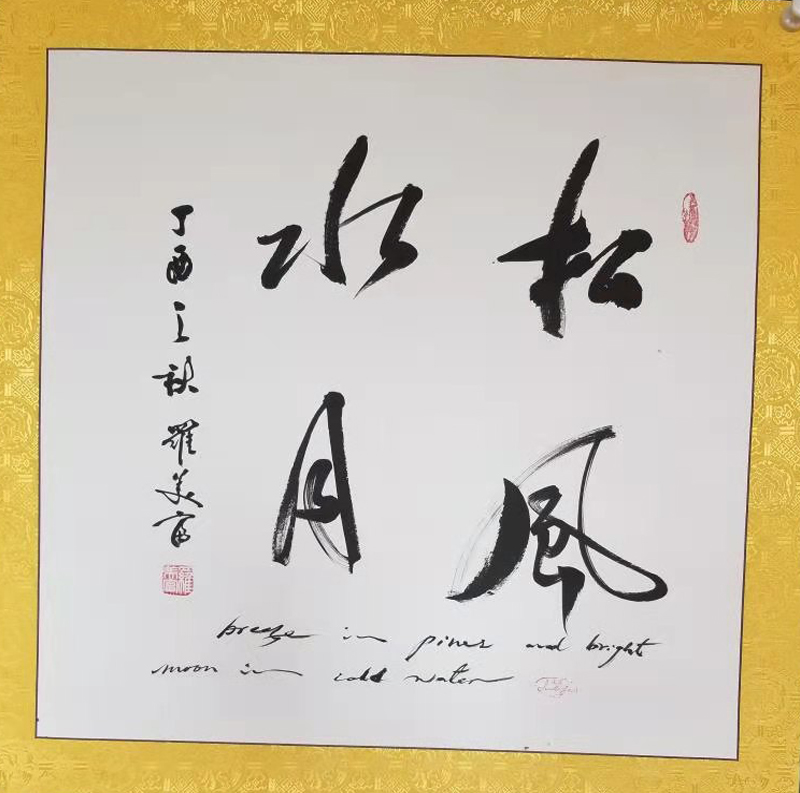 松風
水月
丁酉之秋 羅美富
breeze in pines and bright
moon in cold water